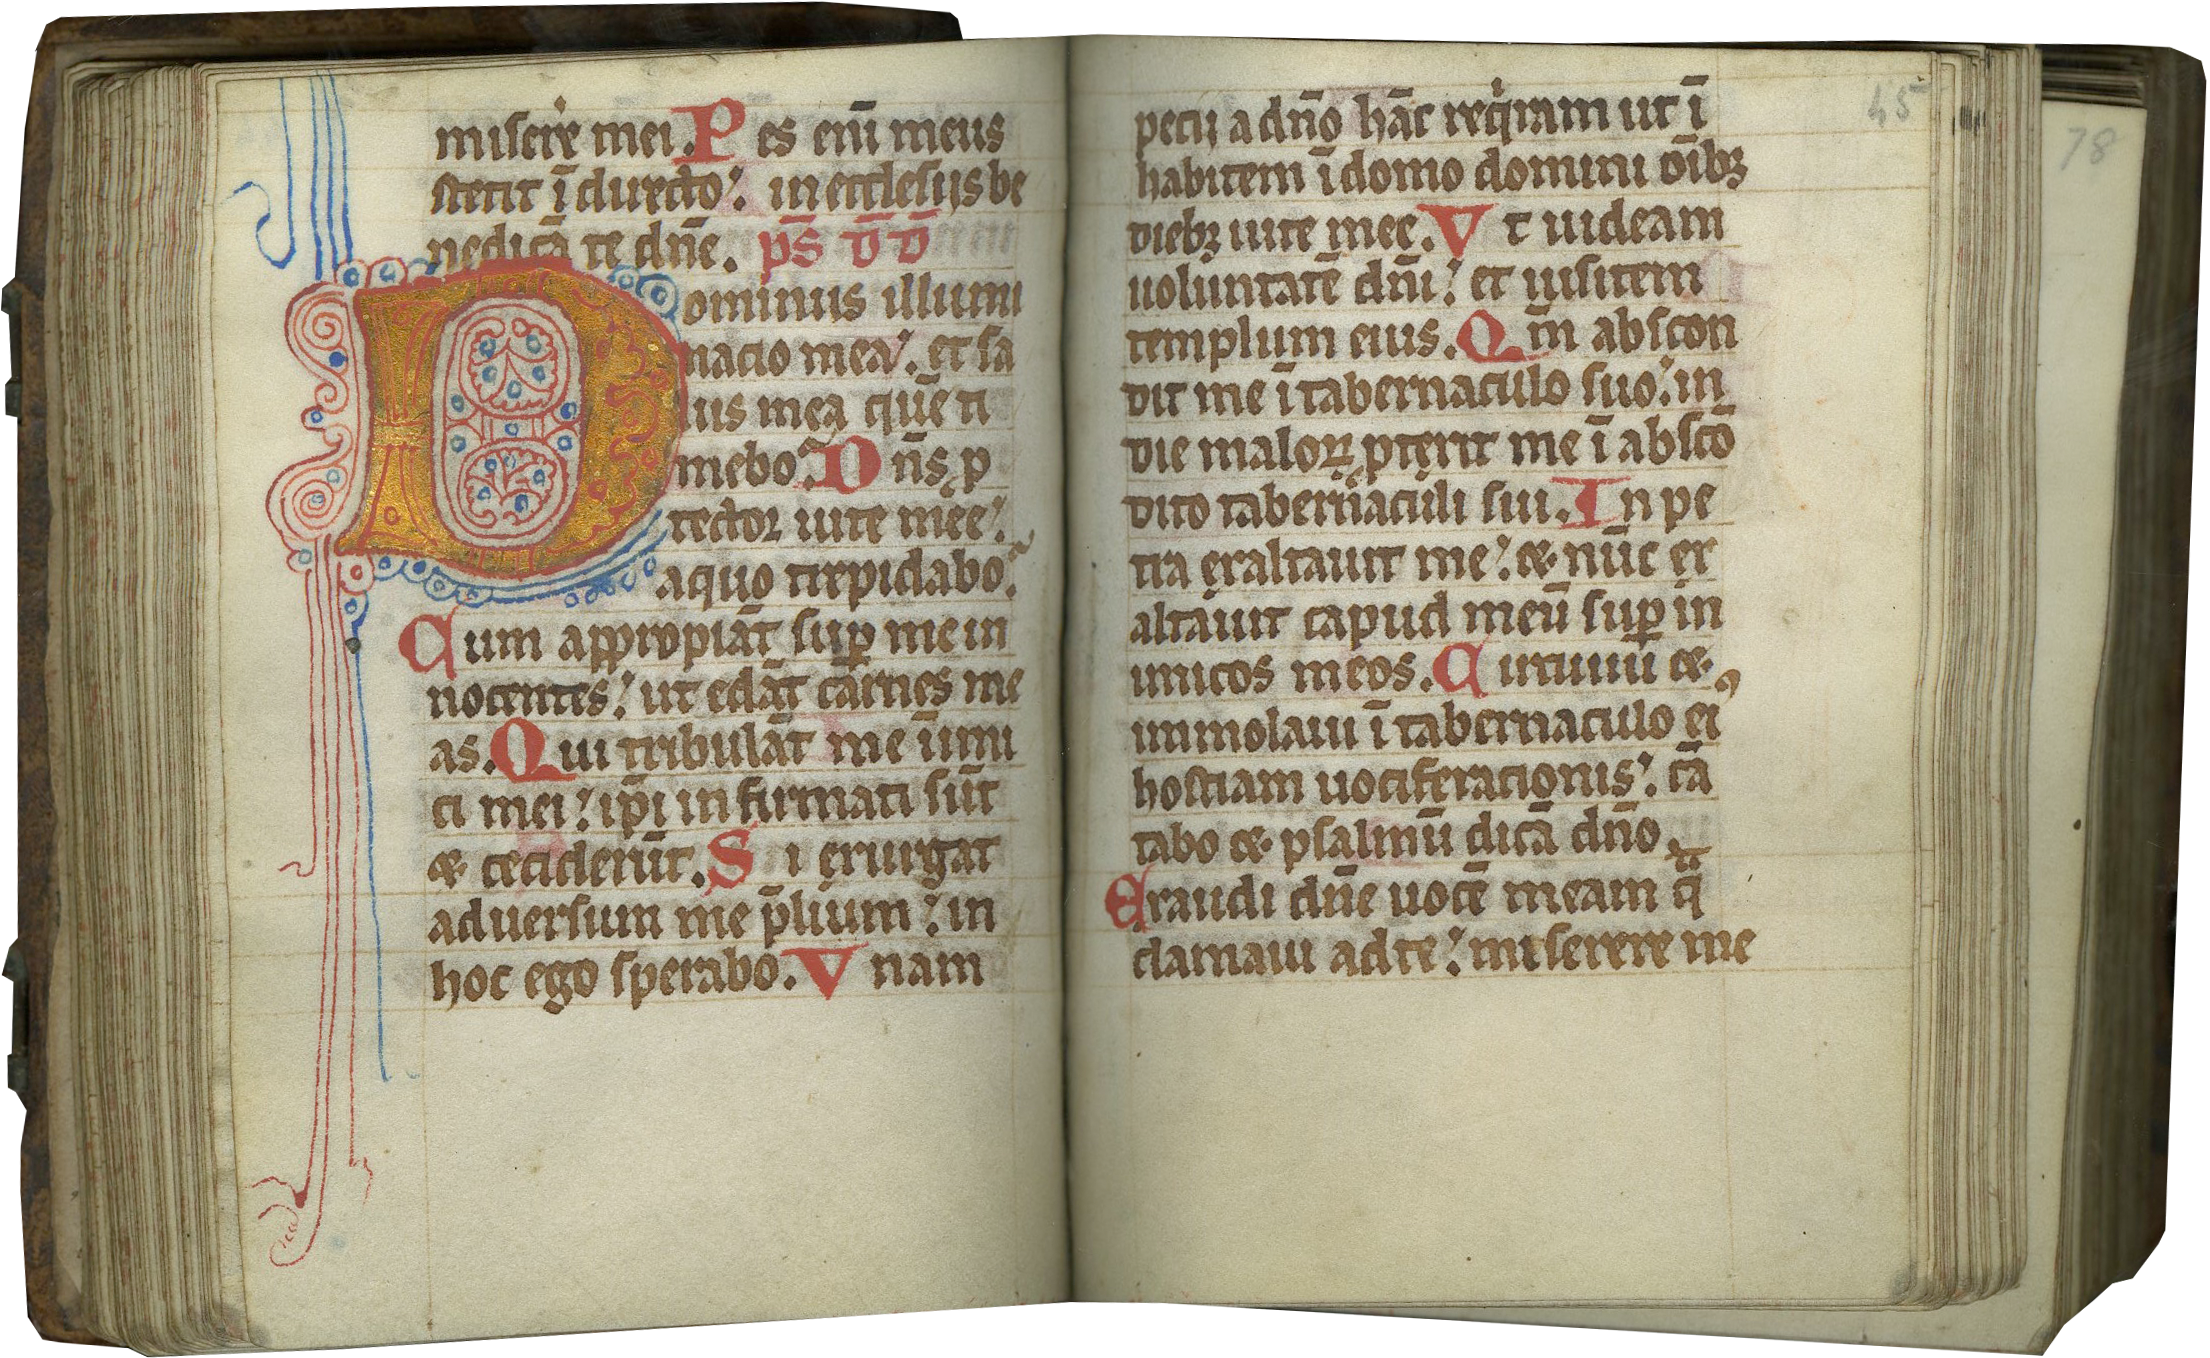 misere mei. Pes eni̅ meus
stetit i̅ directo: in ecclesijs be
nedica̅ te dn̅e. ps̅ d̅d̅
Dominus illumi
nacio mea: et sa
lus mea que̅ ti
mebo. Dn̅s p
tector uite mee:
aquo trepidabo.
Cum appropia̅t sup me in
nocentes: ut eda̅t carnes me
as. Qui tribula̅t me i̅imi
ci mei: ip̅i in firmati su̅t
⁊ cecideru̅t. Si exurgat
adversum me p̅lium: in
hoc ego sperabo. Vnam
pecij a dn̅o ha̅c reqiram ut i̅
habitem i̅ domo domini oi̅bꝫ
diebꝫ uite mee. Vt uideam
uoluntate̅ dn̅i: et uisitem
templum eius. Qm̅ abscon
dit me i̅ tabernaculo suo: in
die maloꝝ ptexit me i̅ absco̅
dito tabernaculi sui. In pe
tra exaltauit me: ⁊ nu̅c ex
altauit capud meu̅ sup in
imicos meos. Circuiui ⁊
immolaui i̅ tabernaculo ei
hostiam uociferacionis: ca̅
tabo ⁊ psalmu̅ dica̅ dn̅o.
Exaudi dn̅e uoce̅ meam q̅
clamaui ad te: miserere me
45
78